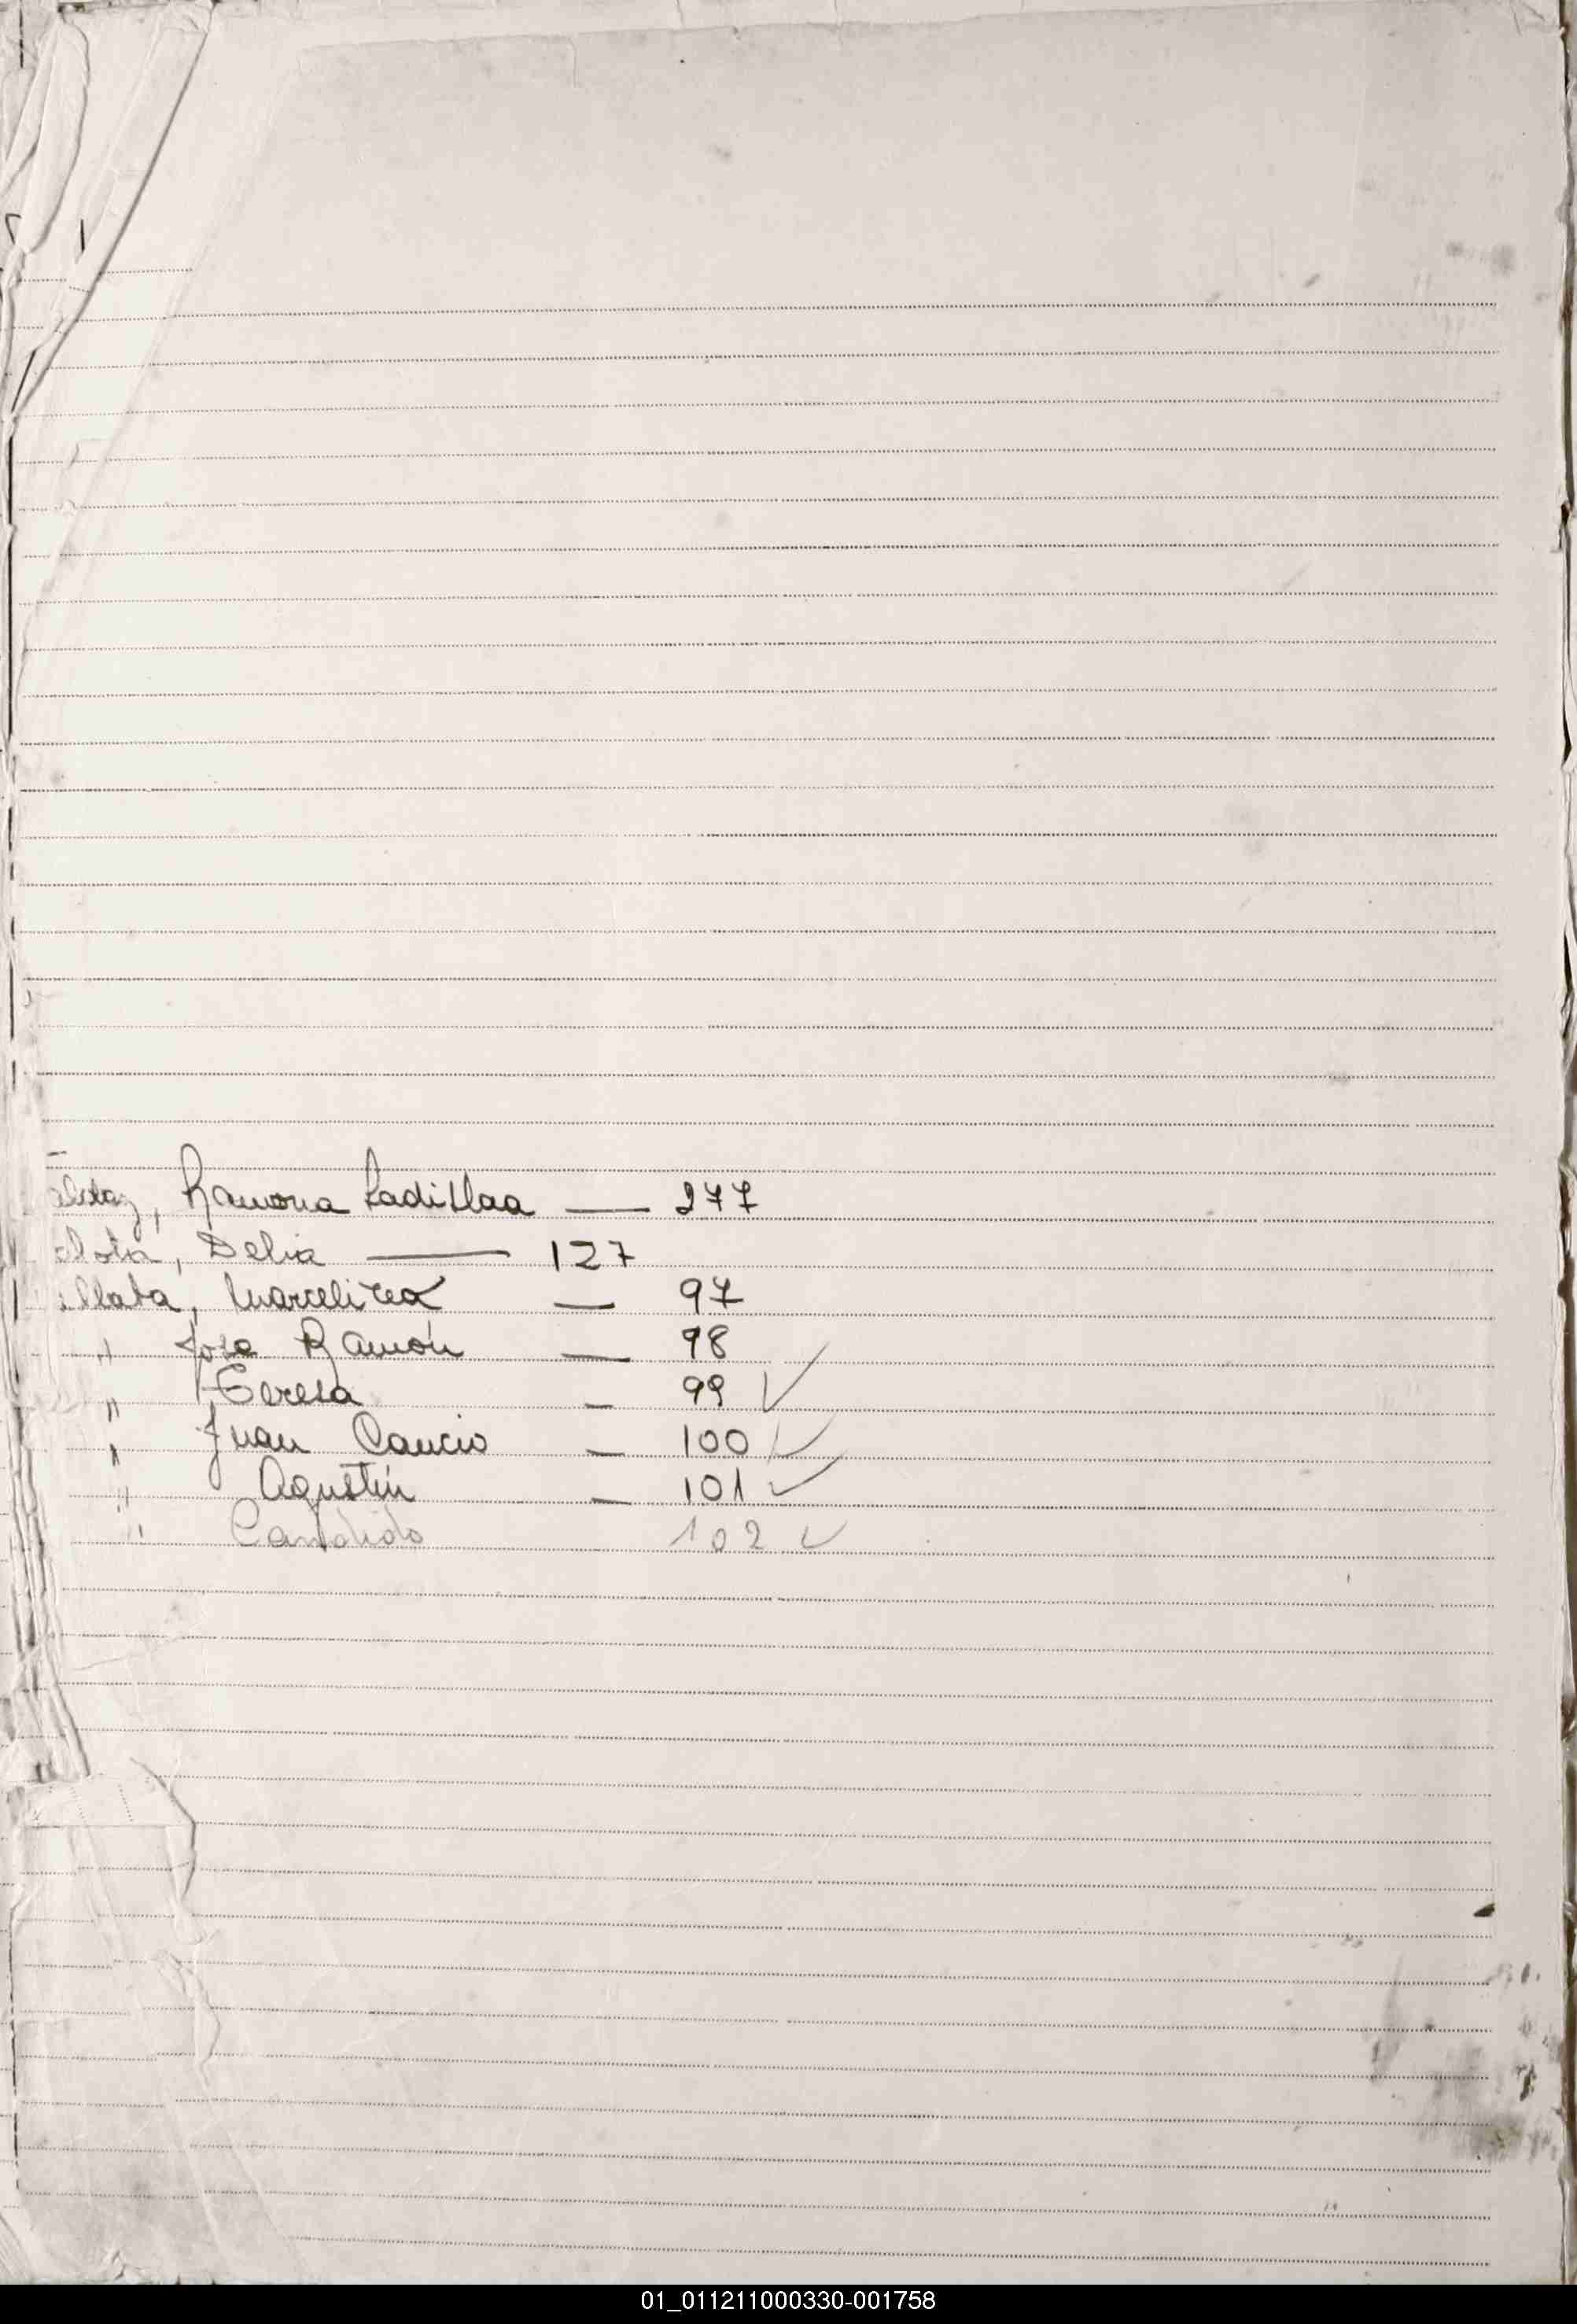 Ramona Ladislaa — 277
Delia — 127
Marcelina — 97
" Jose Ramón — 98
" Teresa — 99 ✓
" Juan Cancio — 100 ✓
" Agustín — 101 ✓
" Candido 102 ✓
01_011211000330-001758